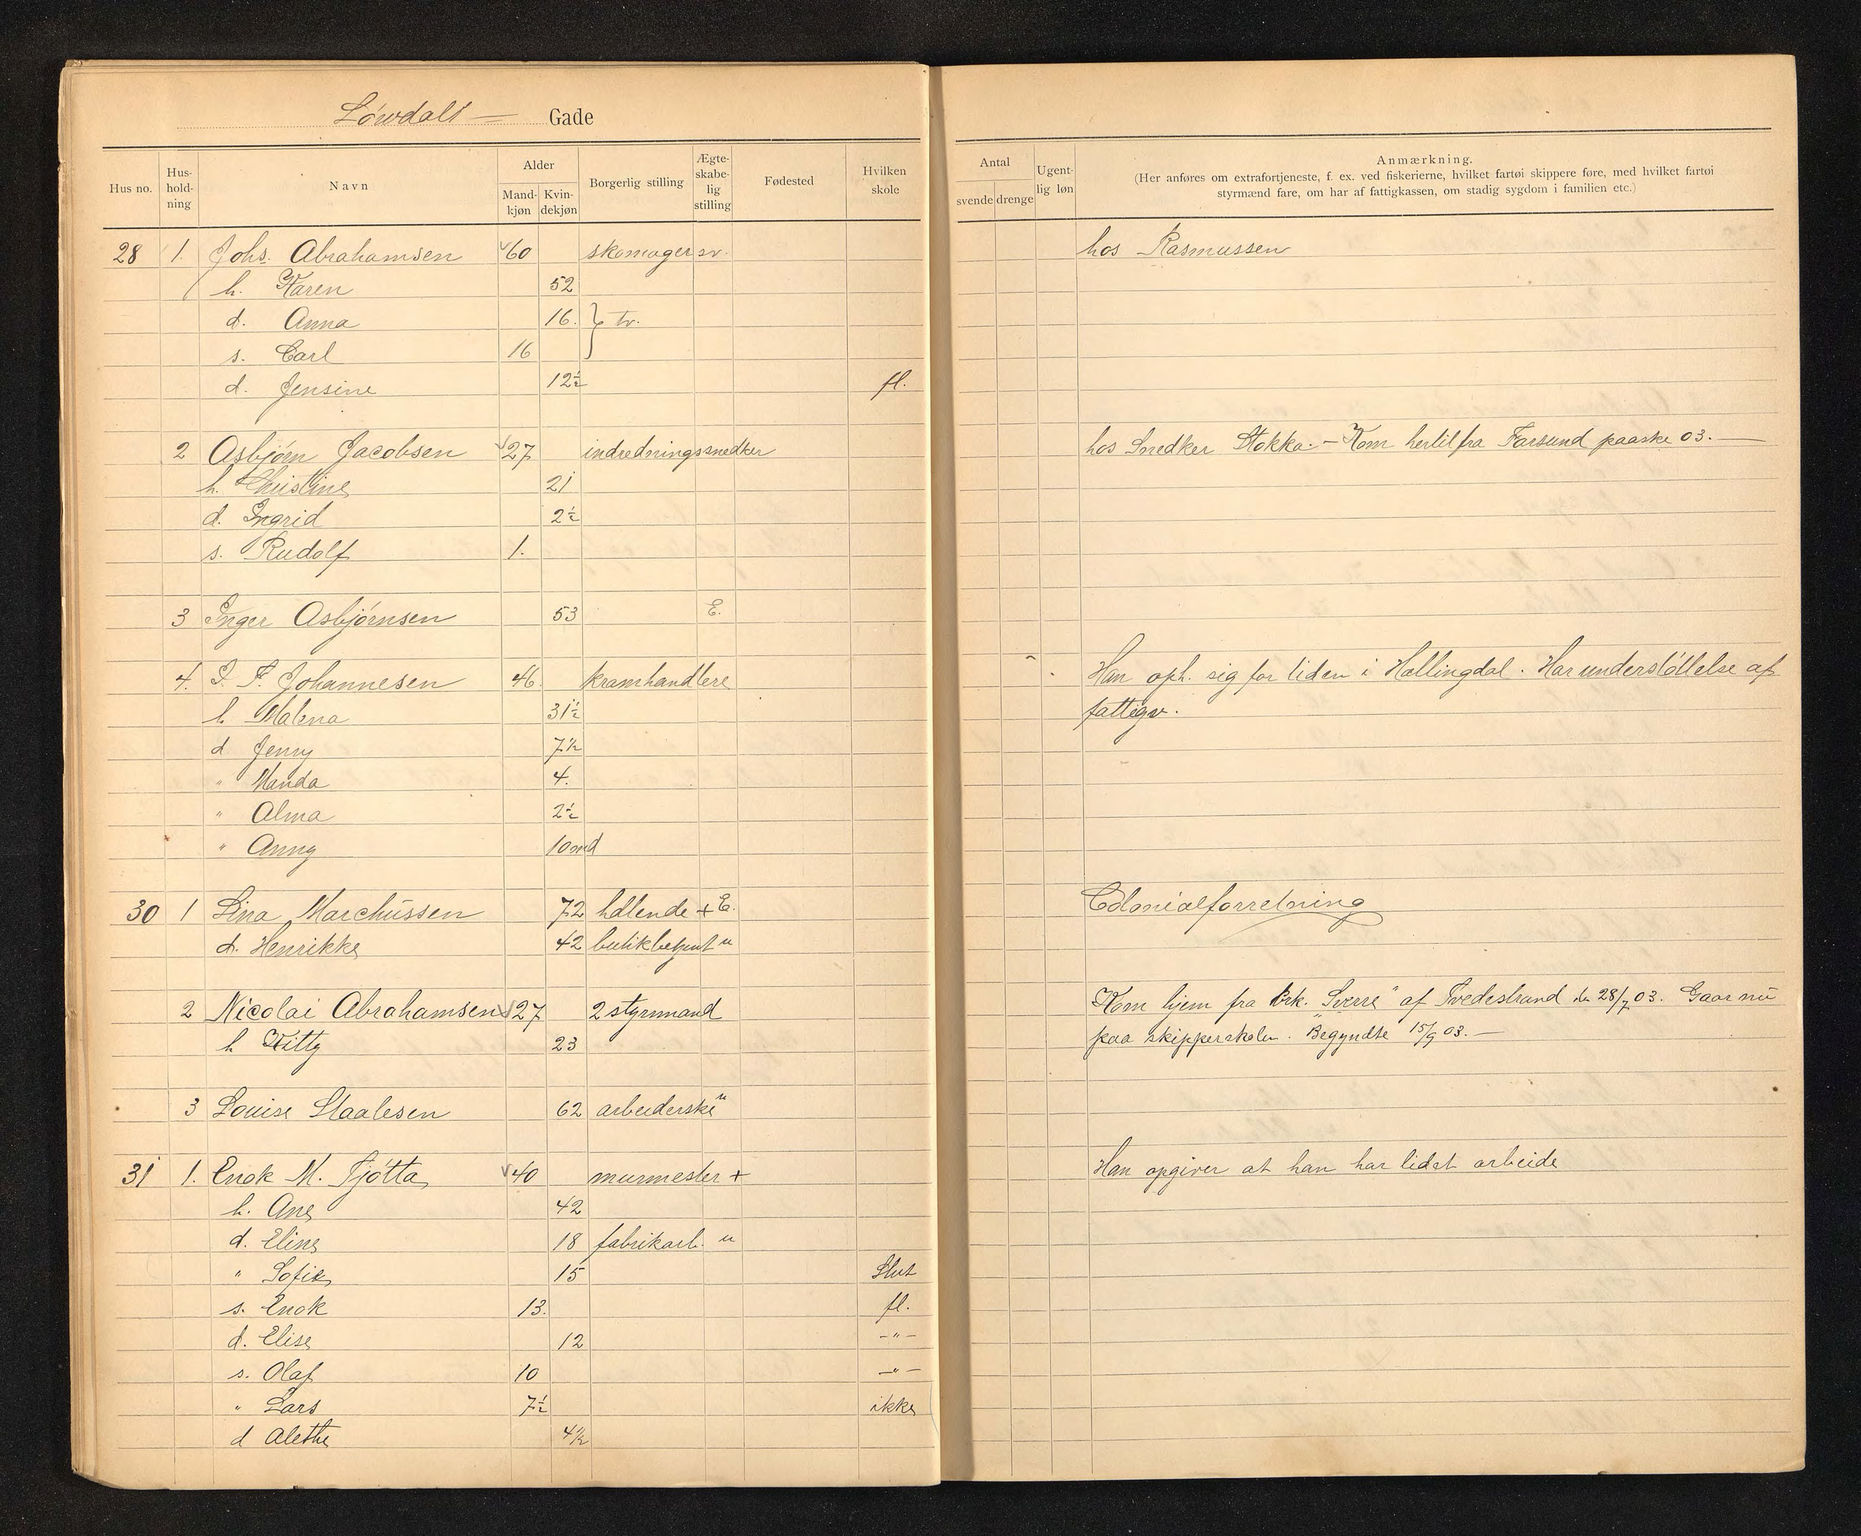 Løwdals — Gade
Hus no. Hus-hold-ning Navn Alder Mand-kjøn Kvin-dekjøn Borgerlig stilling Ægte-skabe-lig stilling Fødested Hvilken skole
Antal svende drenge Ugent-lig løn Anmærkning.
(Her anføres om extrafortjeneste, f. ex. ved fiskerierne, hvilket fartøi skippere føre, med hvilket fartøi
styrmænd fare, om har af fattigkassen, om stadig sygdom i familien etc.)
28 1. Johs. Abrahamsen 60 skomagersv. hos Rasmussen
h. Karen 52
d. Anna 16. } tv.
s. Carl 16
d. Jensine 12½ fl.
2 Asbjørn Jacobsen 27 indredningssnedker hos Snedker Stokka. – Kom hertil fra Farsund paaske 03. —
h. Christine 21
d. Ingrid 2½
s. Rudolf 1.
3 Inger Asbjørnsen 53 E.
4. I. F. Johannesen 46. kramhandlere Han oph. sig for tiden i Hallingdal. Har understøttelse af
fattigv.
h Malena 31½
d Jenny 7½
" Manda 4.
" Alma 2½
" Anny 10 md
30 1 Lina Marchussen 72 hdlende + E. Colonialforretning
d. Henrikke 42 butikbetjent u
2 Nicolai Abrahamsen 27 2 styrmand Kom hjem fra Brk. "Sverre" af Tvedestrand den 28/7 03. Gaar nu
paa skipperskolen. Begyndte 15/9 03. —
h Kitty 23
3 Louise Staalesen 62 arbeiderske u
31 1. Enok M. Tjøtta 40 murmester + Han opgiver at han har lidet arbeide
h. Ane 42
d. Eline 18 fabrikarb. u
" Sofie 15 Slut
s. Enok 13. fl.
d. Elise 12 –"–
s. Olaf 10 –"–
" Lars 7½ ikke
d Alethe 4½